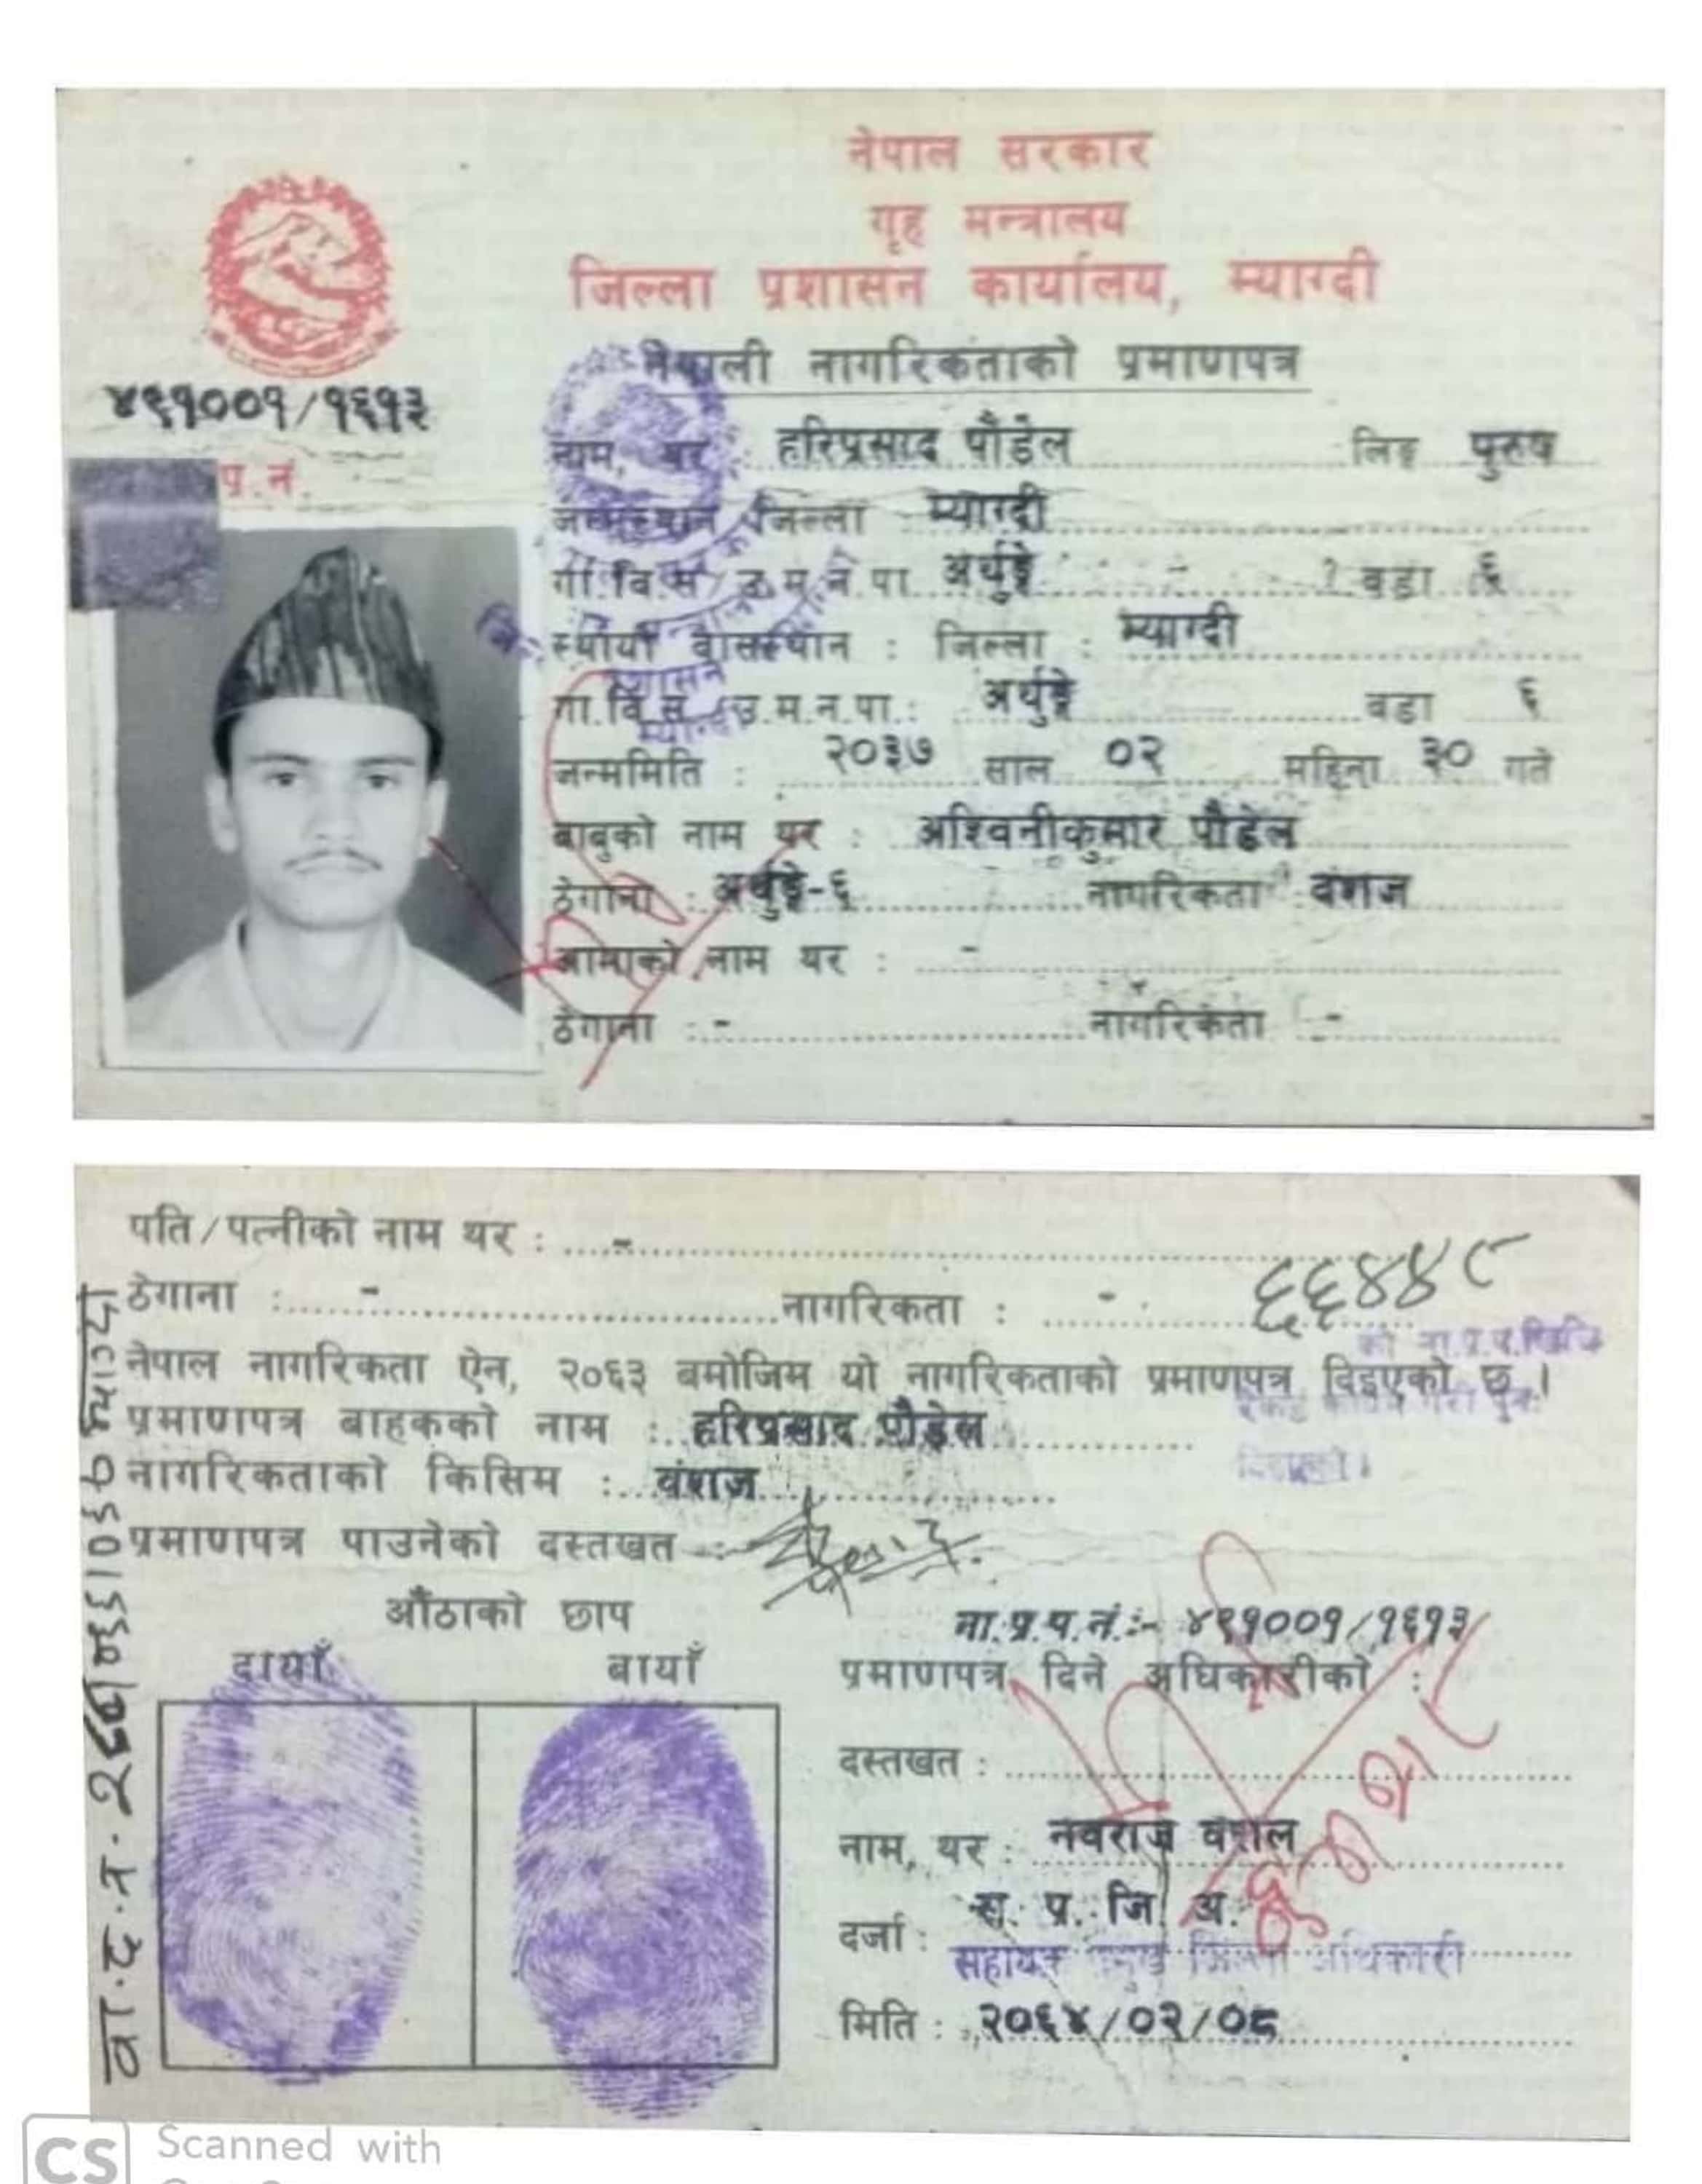 नेपाल सरकार
गृह मन्त्रालय
जिल्ला प्रशासन कार्यालय, म्याग्दी
नेपाली नागरिकताको प्रमाणपत्र
४९१००१/१६१३
प्र.नं.
नाम, थर : हरिप्रसाद पौडेल लिङ्ग पुरुष
जन्मस्थान जिल्ला म्याग्दी
गा.वि.स/उ.म.न.पा. अर्थुङ्गे वडा ६
स्थायी वासस्थान : जिल्ला : म्याग्दी
गा.वि.स. उ.म.न.पा.: अर्थुङ्गे वडा ६
जन्ममिति : २०३७ साल ०२ महिना ३० गते
बाबुको नाम थर : अश्विनीकुमार पौडेल
ठेगाना : अर्थुङ्गे-६ नागरिकता वंशज
आमाको नाम थर : -
ठेगाना : - नागरिकता : -
पति/पत्नीको नाम थर : -
ठेगाना : - नागरिकता : -
६६४४८
नेपाल नागरिकता ऐन, २०६३ बमोजिम यो नागरिकताको प्रमाणपत्र दिइएको छ ।
प्रमाणपत्र बाहकको नाम : हरिप्रसाद पौडेल
नागरिकताको किसिम : वंशज
प्रमाणपत्र पाउनेको दस्तखत :
औंठाको छाप
दायाँ बायाँ
ना.प्र.प.नं.:- ४९१००१/१६१३
प्रमाणपत्र दिने अधिकारीको :
दस्तखत :
नाम, थर : नवराज वंशल
दर्जा : स. प्र. जि. अ.
सहायक प्रमुख जिल्ला अधिकारी
मिति : २०६४/०२/०८
CS Scanned with